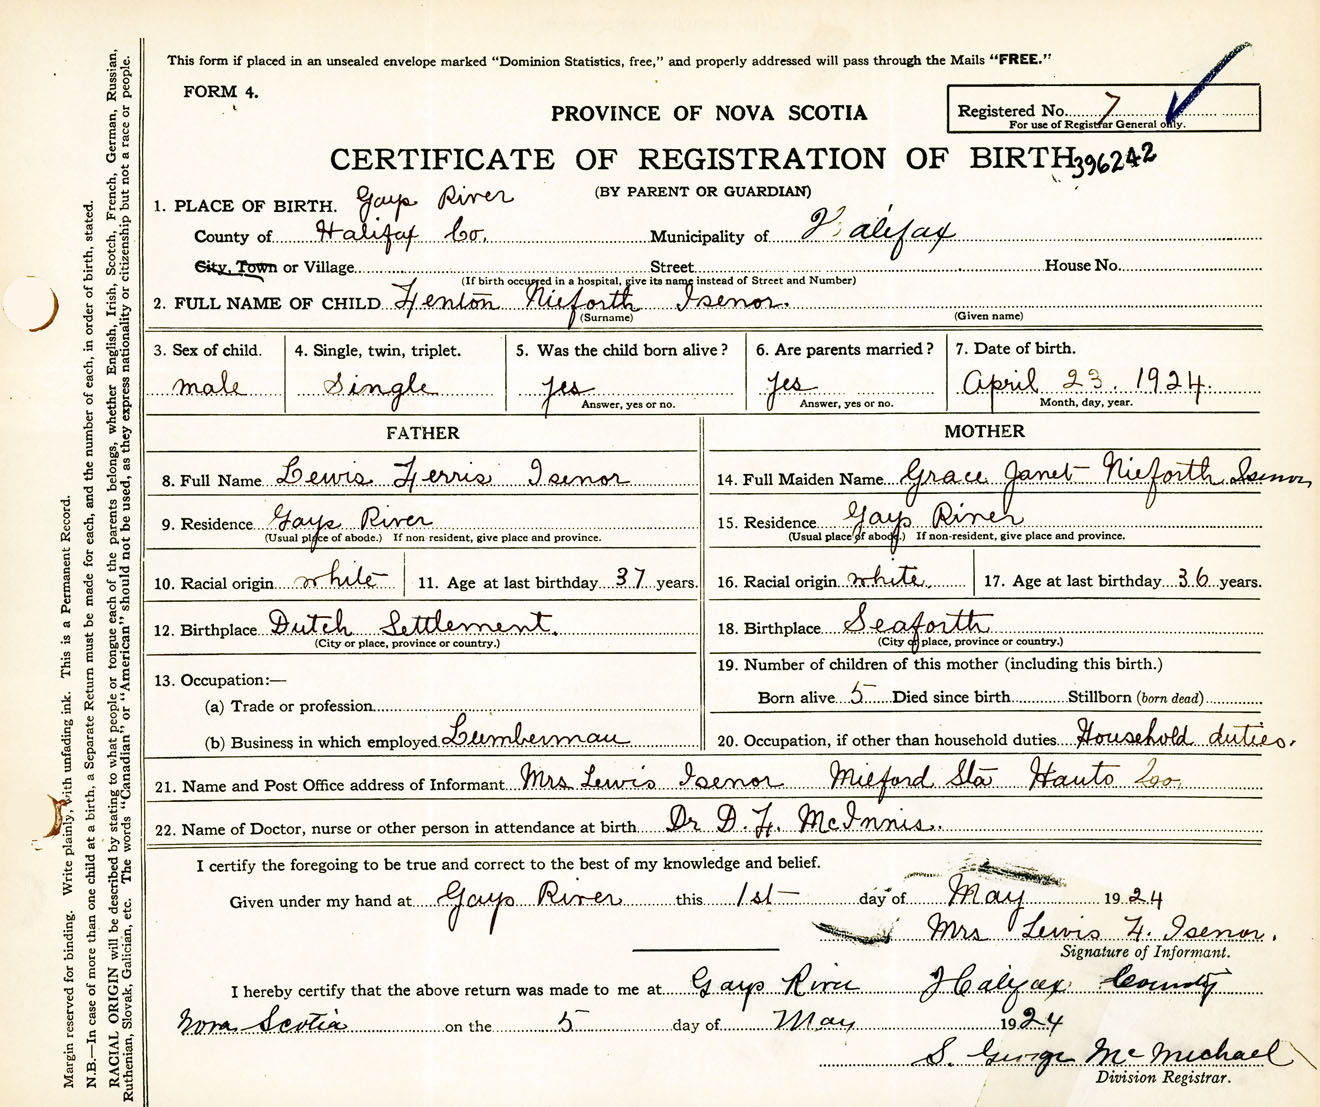 This form if placed in an unsealed envelope marked “Dominion Statistics, free,” and properly addressed will pass through the Mails “FREE.”
FORM 4.
PROVINCE OF NOVA SCOTIA
Registered No. 7
For use of Registrar General only.
CERTIFICATE OF REGISTRATION OF BIRTH
396242
(BY PARENT OR GUARDIAN)
1. PLACE OF BIRTH. Gays River
County of Halifax Co. Municipality of Halifax
City, Town or Village Street House No.
(If birth occurred in a hospital, give its name instead of Street and Number)
2. FULL NAME OF CHILD Fenton Nieforth Isenor.
(Surname) (Given name)
3. Sex of child. 4. Single, twin, triplet. 5. Was the child born alive? 6. Are parents married? 7. Date of birth.
male Single yes yes April 23. 1924.
Answer, yes or no. Answer, yes or no. Month, day, year.
FATHER MOTHER
8. Full Name Lewis Ferris Isenor 14. Full Maiden Name Grace Janet Nieforth Isenor
9. Residence Gays River 15. Residence Gays River
(Usual place of abode.) If non-resident, give place and province. (Usual place of abode.) If non-resident, give place and province.
10. Racial origin white 11. Age at last birthday 37 years. 16. Racial origin white 17. Age at last birthday 36 years.
12. Birthplace Dutch Settlement. 18. Birthplace Seaforth
(City or place, province or country.) (City or place, province or country.)
19. Number of children of this mother (including this birth.)
13. Occupation:—
(a) Trade or profession Born alive 5 Died since birth Stillborn (born dead)
(b) Business in which employed Lumberman 20. Occupation, if other than household duties Household duties.
21. Name and Post Office address of Informant Mrs Lewis Isenor Milford Sta Hants Co.
22. Name of Doctor, nurse or other person in attendance at birth Dr D. F. McInnis.
I certify the foregoing to be true and correct to the best of my knowledge and belief.
Given under my hand at Gays River this 1st day of May 1924
Mrs Lewis F. Isenor.
Signature of Informant.
I hereby certify that the above return was made to me at Gays River Halifax County
Nova Scotia on the 5 day of May 1924
S. George McMichael
Division Registrar.
Margin reserved for binding. Write plainly, with unfading ink. This is a Permanent Record.
N.B.—In case of more than one child at a birth, a Separate Return must be made for each, and the number of each, in order of birth, stated.
RACIAL ORIGIN will be described by stating to what people or tongue each of the parents belongs, whether English, Irish, Scotch, French, German, Russian,
Ruthenian, Slovak, Galician, etc. The words “Canadian” or “American” should not be used, as they express nationality or citizenship but not a race or people.